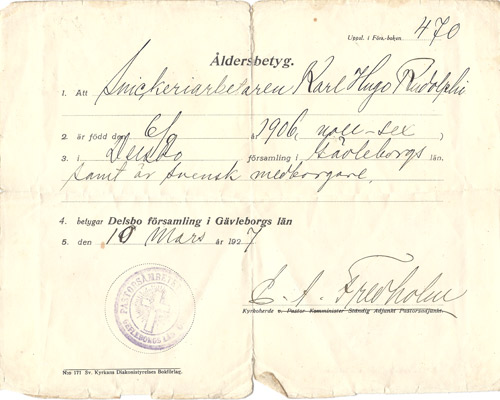 Uppd. i Förs.-boken 470
Åldersbetyg.
1. Att Snickeriarbetaren Karl Hugo Rudolphi
2. är född den 6/ å 1906, noll-sex
3. i Delsbo församling i Gävleborgs län,
samt är svensk medborgare,
4. betygar Delsbo församling i Gävleborgs län
5. den 10 Mars år 1927
PASTORSÄMBETET
GÄVLEBORGS LÄN
C. A. Fredholm
Kyrkoherde v. Pastor Komminister Ständig Adjunkt Pastorsadjunkt.
N:o 171 Sv. Kyrkans Diakonistyrelses Bokförlag.